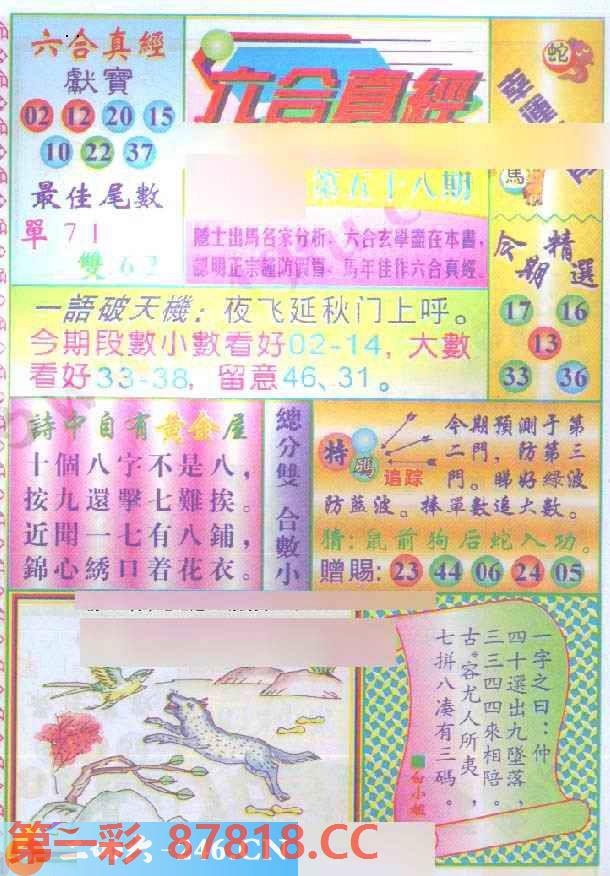 六合真經
獻寶
02 12 20 15
10 22 37
最佳尾數
單 7 1
雙 6 2
六合真經
第五十八期
隱士出馬名家分析，六合玄學盡在本書，
認明正宗謹防假冒，馬年佳作六合真經。
蛇
馬
今期精選
17 16
13
33 36
一語破天機：夜飞延秋门上呼。
今期段數小數看好02-14，大數
看好33-38，留意46、31。
詩中自有黃金屋
十個八字不是八，
按九還擊七難挨。
近聞一七有八鋪，
錦心綉口着花衣。
總分雙 合數小
特碼
追踪
今期預測于第
二門，防第三
門。睇好綠波
防藍波。捧單數追大數。
猜：鼠前狗后蛇入功。
赠賜：23 44 06 24 05
一字之曰：仲
四十選出九墜落，
三三四四來相陪。
古。容尤人所夷，
七拼八凑有三碼。
白小姐
第一彩 87818.CC
246.CN